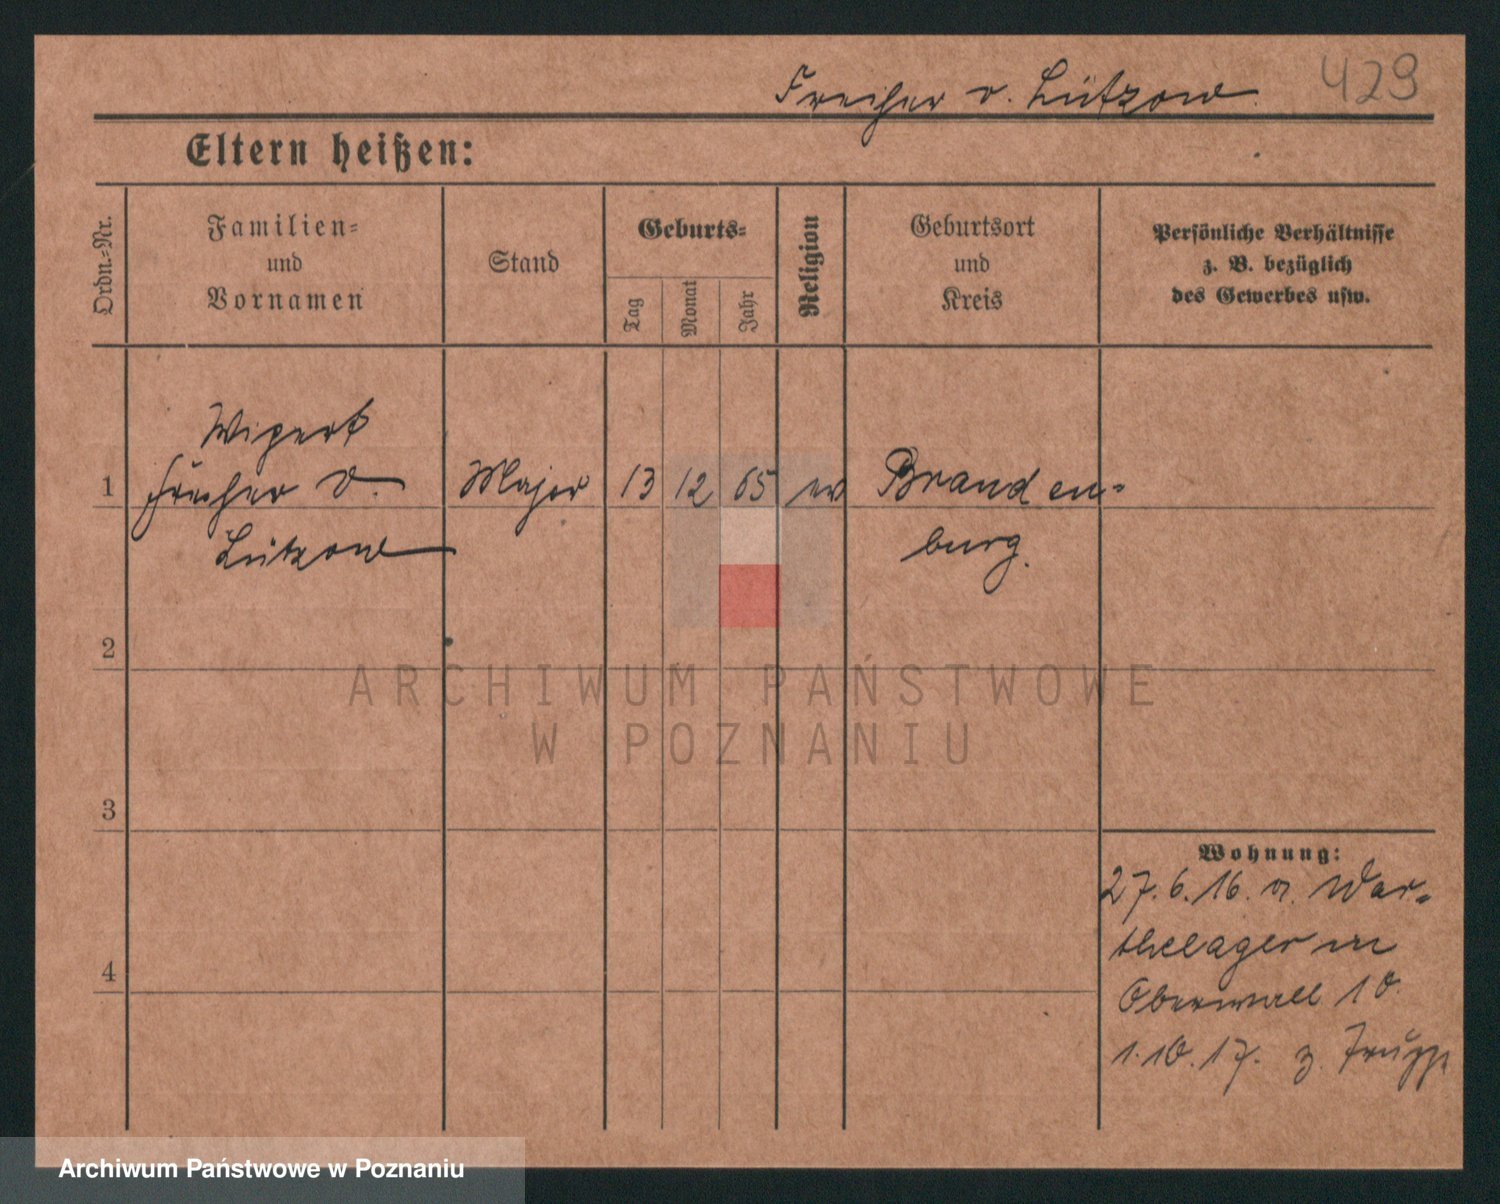 Freiherr v. Lützow. 429
Eltern heißen:
Ordn.-Nr.
Familien-
und
Vornamen
Stand
Geburts-
Tag
Monat
Jahr
Religion
Geburtsort
und
Kreis
Persönliche Verhältnisse
z. B. bezüglich
des Gewerbes usw.
Wipert
1 Freiherr v. Major 13 12 65 ev Branden-
Lützow burg.
2
ARCHIWUM PAŃSTWOWE
W POZNANIU
3
Wohnung:
27.6.16. a. War-
thelager in
4
Oberwall 10.
1.10.17. z. Truppe
Archiwum Państwowe w Poznaniu